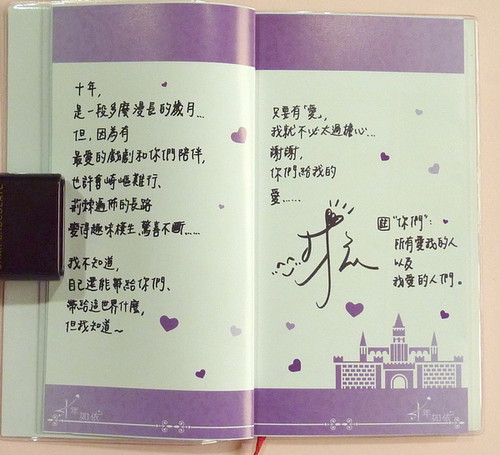 十年,
是一段多麼漫長的歲月...
但,因為有
最愛的戲劇和你們陪伴,
也許會崎嶇難行、
荊棘遍佈的長路
變得趣味橫生、驚喜不斷......
我不知道,
自己還能帶給你們、
帶給這世界什麼,
但我知道~
十年
如依
只要有「愛」,
我就不必太過擔心...
謝謝,
你們給我的
愛......
註 "你們":
所有愛我的人
以及
我愛的人們。
十年
如依